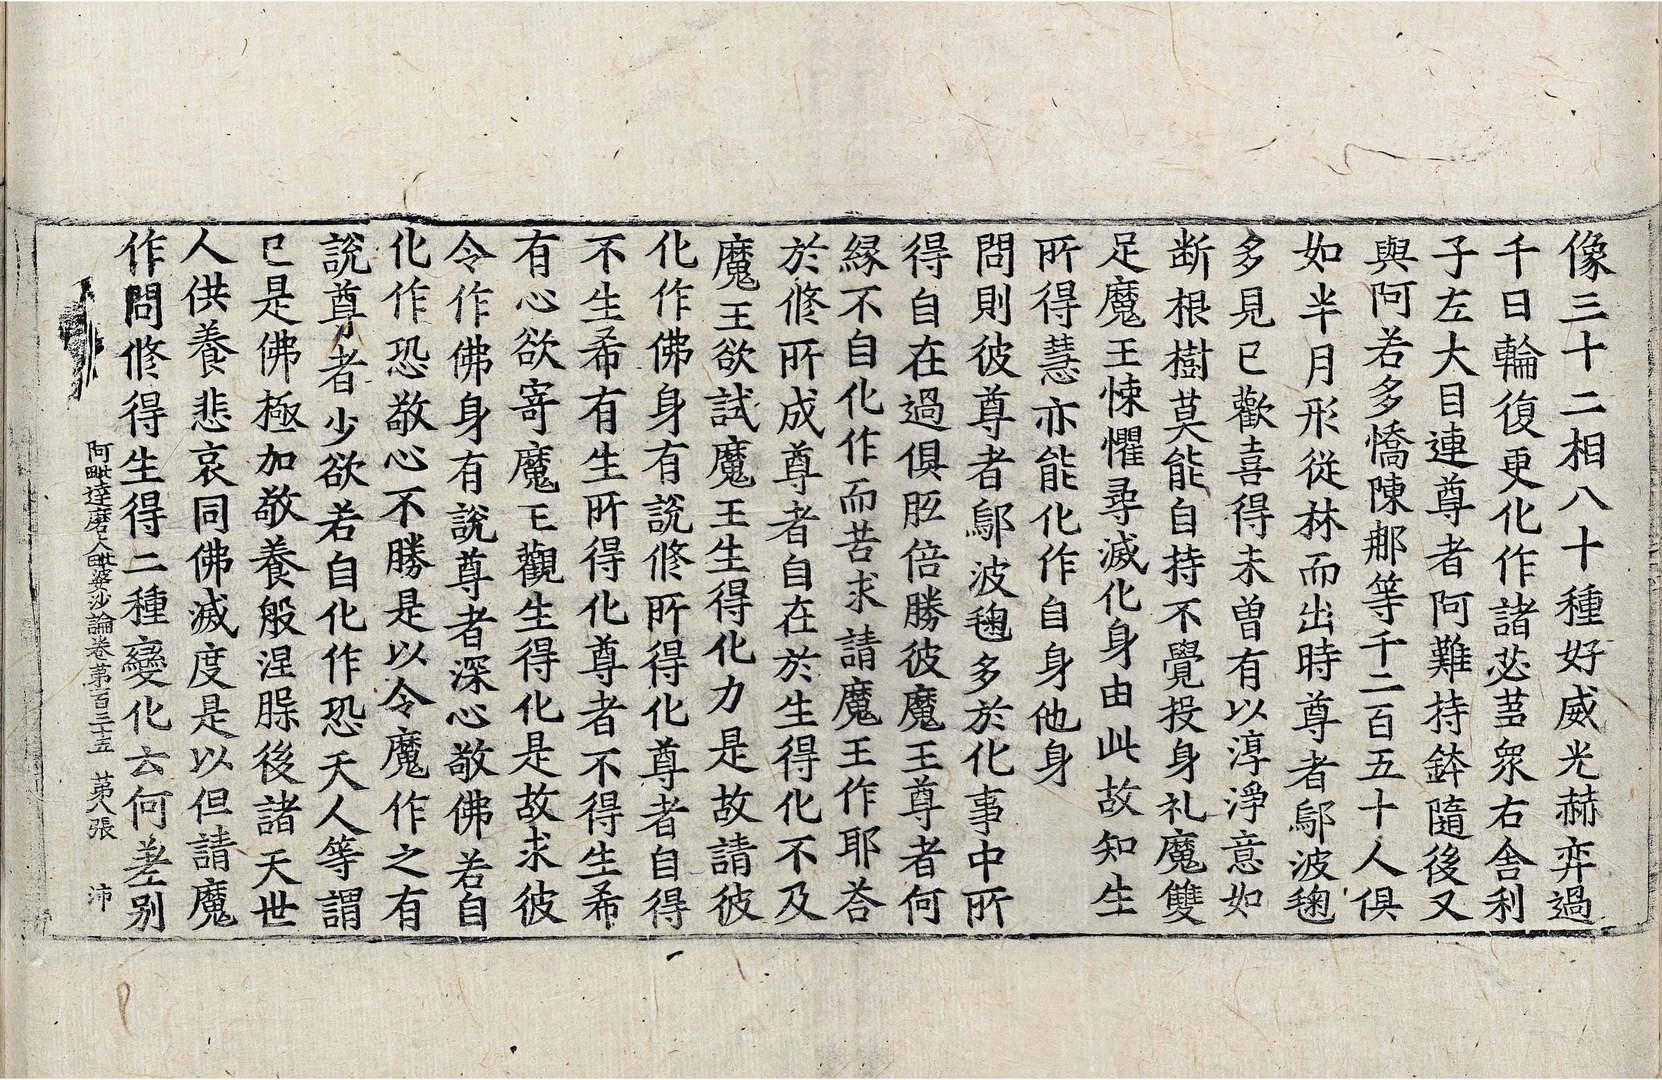 像三十二相八十種好威光赫弈過
千日輪復更化作諸苾蒭衆右舍利
子左大目連尊者阿難持鉢隨後又
與阿若多憍陳那等千二百五十人俱
如半月形從林而出時尊者鄔波毱
多見已歡喜得未曾有以淳淨意如
断根樹莫能自持不覺投身礼魔雙
足魔王悚懼尋滅化身由此故知生
所得慧亦能化作自身他身
問則彼尊者鄔波毱多於化事中所
得自在過俱胝倍勝彼魔王尊者何
緣不自化作而苦求請魔王作耶荅
於修所成尊者自在於生得化不及
魔王欲試魔王生得化力是故請彼
化作佛身有說修所得化尊者自得
不生希有生所得化尊者不得生希
有心欲寄魔王觀生得化是故求彼
令作佛身有說尊者深心敬佛若自
化作恐敬心不勝是以令魔作之有
說尊者少欲若自化作恐天人等謂
已是佛極加敬養般涅槃後諸天世
人供養悲哀同佛滅度是以但請魔
作問修得生得二種變化云何差别
阿毗達磨大毗婆沙論卷第百三十五 第八張 沛